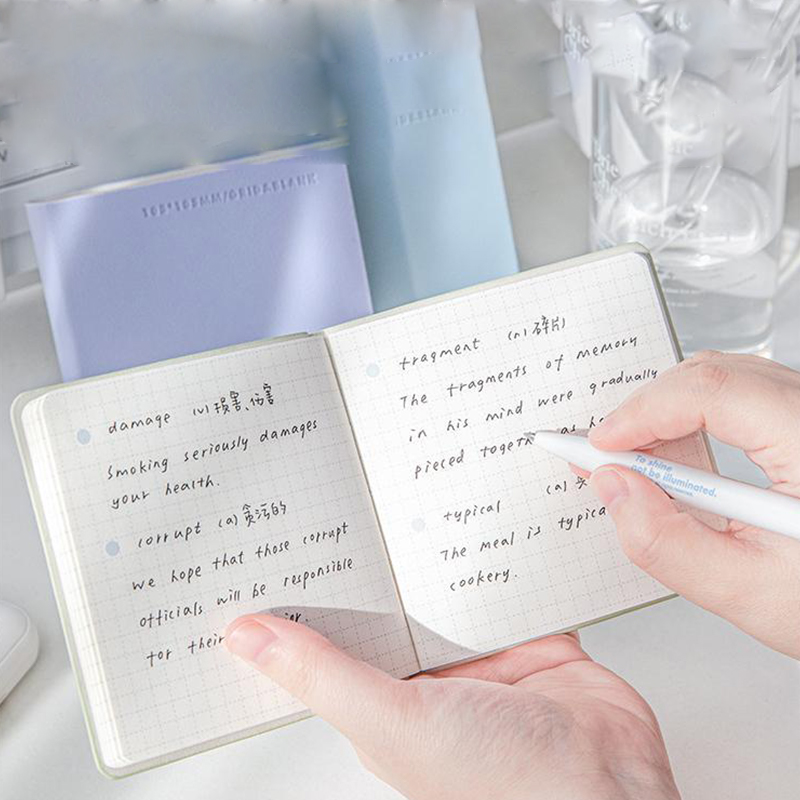 105*105MM/GRID&BLANK
damage (v) 损害、伤害
Smoking seriously damages
your health.
corrupt (a) 贪污的
We hope that those corrupt
officials will be responsible
for their
fragment (n) 碎片
The fragments of memory
in his mind were gradually
pieced as
typical (a)
The meal is
cookery.
To shine
not be illuminated.